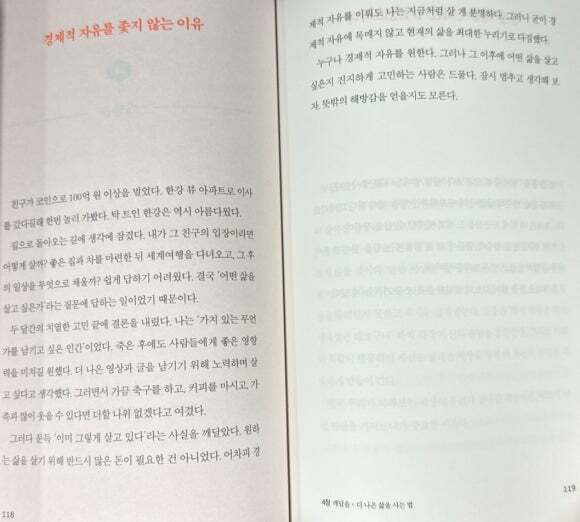 경제적 자유를 좇지 않는 이유
친구가 코인으로 100억 원 이상을 벌었다. 한강 뷰 아파트로 이사
를 갔다길래 한번 놀러 가봤다. 탁 트인 한강은 역시 아름다웠다.
집으로 돌아오는 길에 생각에 잠겼다. 내가 그 친구의 입장이라면
어떻게 살까? 좋은 집과 차를 마련한 뒤 세계여행을 다녀오고, 그 후
의 일상을 무엇으로 채울까? 쉽게 답하기 어려웠다. 결국 '어떤 삶을
살고 싶은가'라는 질문에 답하는 일이었기 때문이다.
두 달간의 치열한 고민 끝에 결론을 내렸다. 나는 '가치 있는 무언
가를 남기고 싶은 인간'이었다. 죽은 후에도 사람들에게 좋은 영향
력을 미치길 원했다. 더 나은 영상과 글을 남기기 위해 노력하며 살
고 싶다고 생각했다. 그러면서 가끔 축구를 하고, 커피를 마시고, 가
족과 많이 웃을 수 있다면 더할 나위 없겠다고 여겼다.
그러다 문득 '이미 그렇게 살고 있다'라는 사실을 깨달았다. 원하
는 삶을 살기 위해 반드시 많은 돈이 필요한 건 아니었다. 어차피 경
118
제적 자유를 이뤄도 나는 지금처럼 살 게 분명하다. 그러니 굳이 경
제적 자유에 목매지 않고 현재의 삶을 최대한 누리기로 다짐했다.
누구나 경제적 자유를 원한다. 그러나 그 이후에 어떤 삶을 살고
싶은지 진지하게 고민하는 사람은 드물다. 잠시 멈추고 생각해 보
자. 뜻밖의 해방감을 얻을지도 모른다.
4장 깨달음 • 더 나은 삶을 사는 법
119